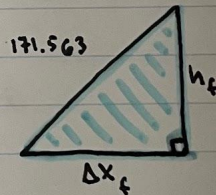 171.563
h_f
Δx_f